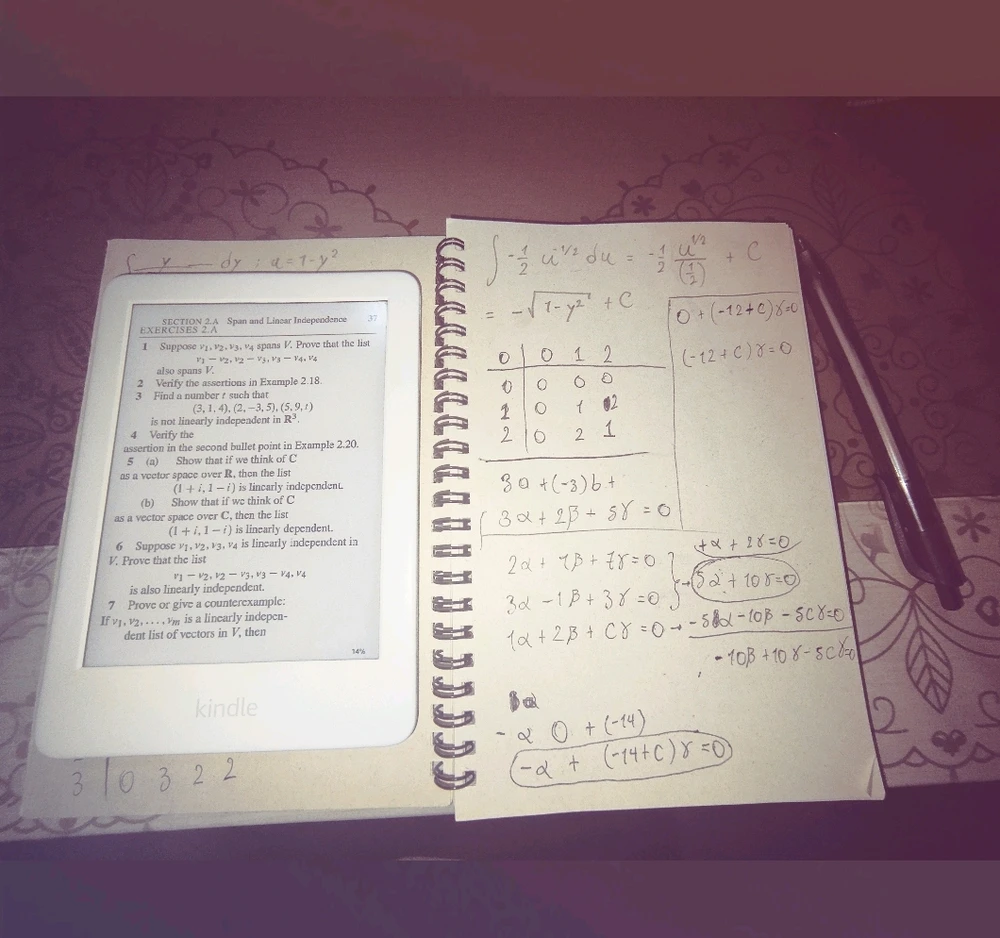 ∫ y dy : u = 1 - y²
SECTION 2.A Span and Linear Independence 37
EXERCISES 2.A
1 Suppose v₁, v₂, v₃, v₄ spans V. Prove that the list
v₁ − v₂, v₂ − v₃, v₃ − v₄, v₄
also spans V.
2 Verify the assertions in Example 2.18.
3 Find a number t such that
(3, 1, 4), (2, −3, 5), (5, 9, t)
is not linearly independent in R³.
4 Verify the
assertion in the second bullet point in Example 2.20.
5 (a) Show that if we think of C
as a vector space over R, then the list
(1 + i, 1 − i) is linearly independent.
(b) Show that if we think of C
as a vector space over C, then the list
(1 + i, 1 − i) is linearly dependent.
6 Suppose v₁, v₂, v₃, v₄ is linearly independent in
V. Prove that the list
v₁ − v₂, v₂ − v₃, v₃ − v₄, v₄
is also linearly independent.
7 Prove or give a counterexample:
If v₁, v₂, . . . , vₘ is a linearly indepen-
dent list of vectors in V, then
14%
kindle
3 | 0 3 2 2
∫ -1/2 u^-1/2 du = -1/2 u^1/2/(1/2) + C
= -√1-y² + C
0 | 0 1 2
0 | 0 0 0
1 | 0 1 2
2 | 0 2 1
3a + (-3)b +
3α + 2β + 5γ = 0
2α + 1β + 7γ = 0
3α - 1β + 3γ = 0
1α + 2β + Cγ = 0 →
- α 0 + (-14)
-α + (-14+C)γ = 0
0 + (-12+C)γ=0
(-12+C)γ=0
+α + 2γ=0
→ 5α + 10γ=0
-5α -10β - 5Cγ=0
-10β +10γ -5Cγ=0